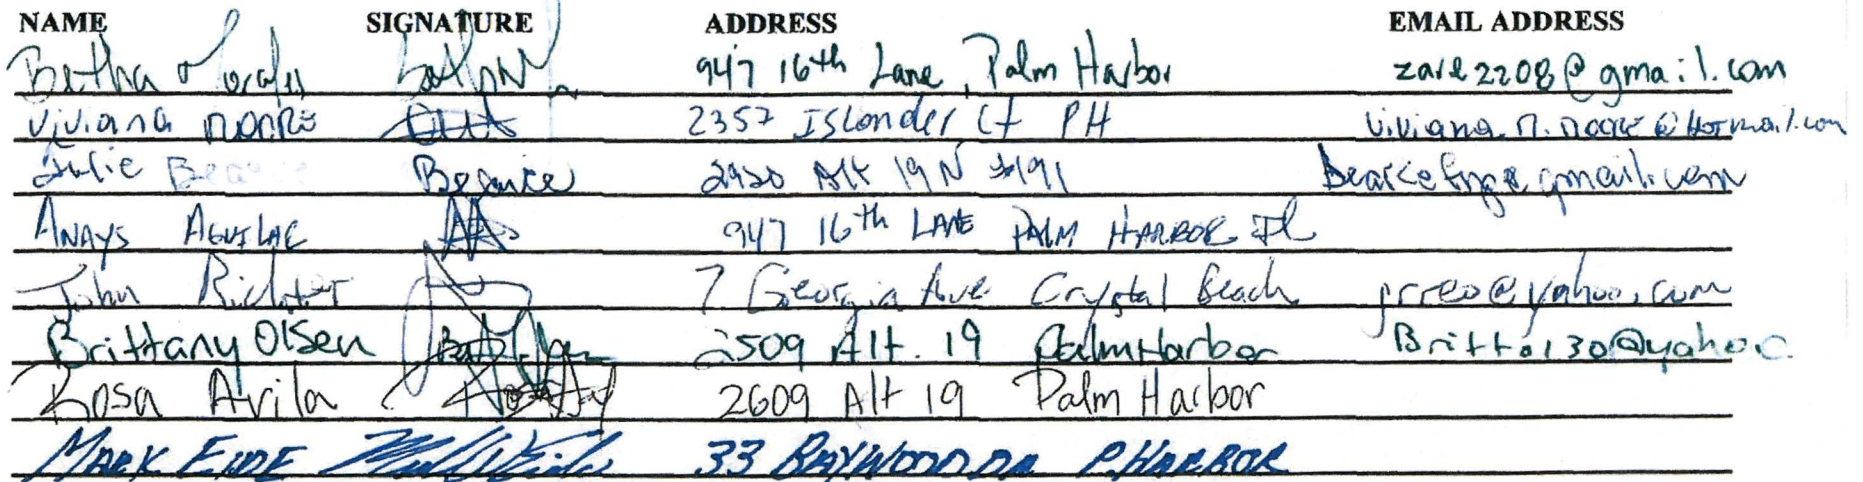 NAME SIGNATURE ADDRESS EMAIL ADDRESS
Bertha Morales 947 16th Lane, Palm Harbor zare2208@gmail.com
Viviana 2357 Islander Ct PH
Julie Bearce Bearce 2920 Alt 19 N #191
ANAYS AGUILAR 947 16th LANE PALM HARBOR FL
John Richter 7 Georgia Ave Crystal Beach jrreo@yahoo.com
Brittany Olsen 2509 Alt. 19 Palm Harbor
Rosa Avila 2609 Alt 19 Palm Harbor
MARK EIDE 33 BAYWOOD DR P.HARBOR